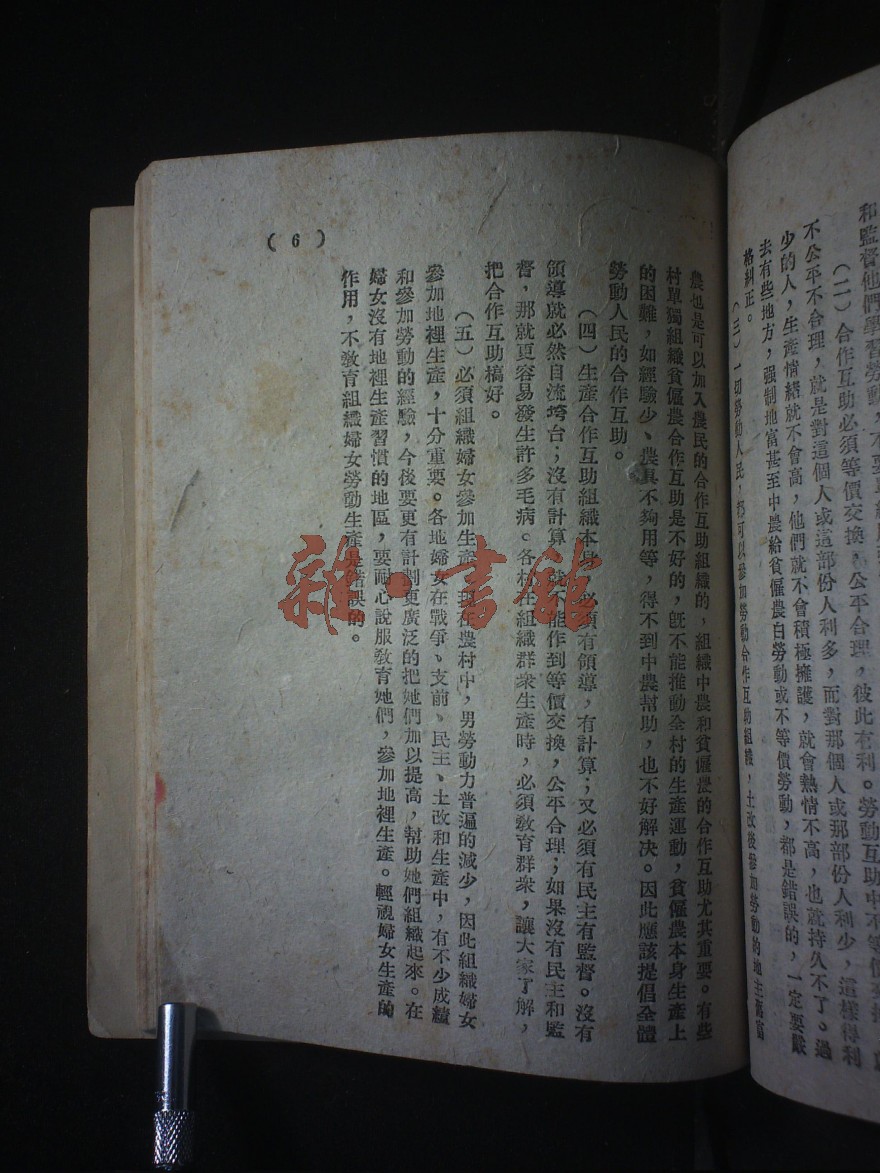 和監督他們學習勞動，不
（二）合作互助必須等價交換，公平合理，彼此有利。勞動互助中不等價交換，
不公平不合理，就是對這個人或這部份人利多，而對那個人或那部份人利少，這樣得利
少的人，生產情緒就不會高，他們就不會積極擁護，就會熱情不高，也就持久不了。過
去有些地方，强制地富甚至中農給貧僱農白勞動或不等價勞動，都是錯誤的，一定要嚴
格糾正。
（三）一切勞動人民，都可以參加勞動合作互助組織，土改後參加勞動的地主富富
農也是可以加入農民的合作互助組織的，組織中農和貧僱農的合作互助尤其重要。有些
村單獨組織貧僱農合作互助是不好的，旣不能推動全村的生產運動，貧僱農本身生產上
的困難，如經驗少、農具不夠用等，得不到中農幫助，也不好解决。因此應該提倡全體
勞動人民的合作互助。
（四）生產合作互助組織本身必須有領導，有計算；又必須有民主有監督。沒有
領導就必然自流垮台；沒有計算就不能作到等價交換，公平合理；如果沒有民主和監
督，那就更容易發生許多毛病。各村在組織群衆生產時，必須敎育群衆，讓大家了解，
把合作互助搞好。
（五）必須組織婦女參加生產，現在農村中，男勞動力普遍的減少，因此組織婦女
參加地裡生產，十分重要。各地婦女在戰爭、支前、民主、土改和生產中，有不少成績
和參加勞動的經驗，今後要更有計劃更廣泛的把她們加以提高，幫助她們組織起來。在
婦女沒有地裡生產習慣的地區，要耐心說服敎育她們，參加地裡生產。輕視婦女生產的
作用，不敎育組織婦女勞動生產是錯誤的。
（6）
雜·書館